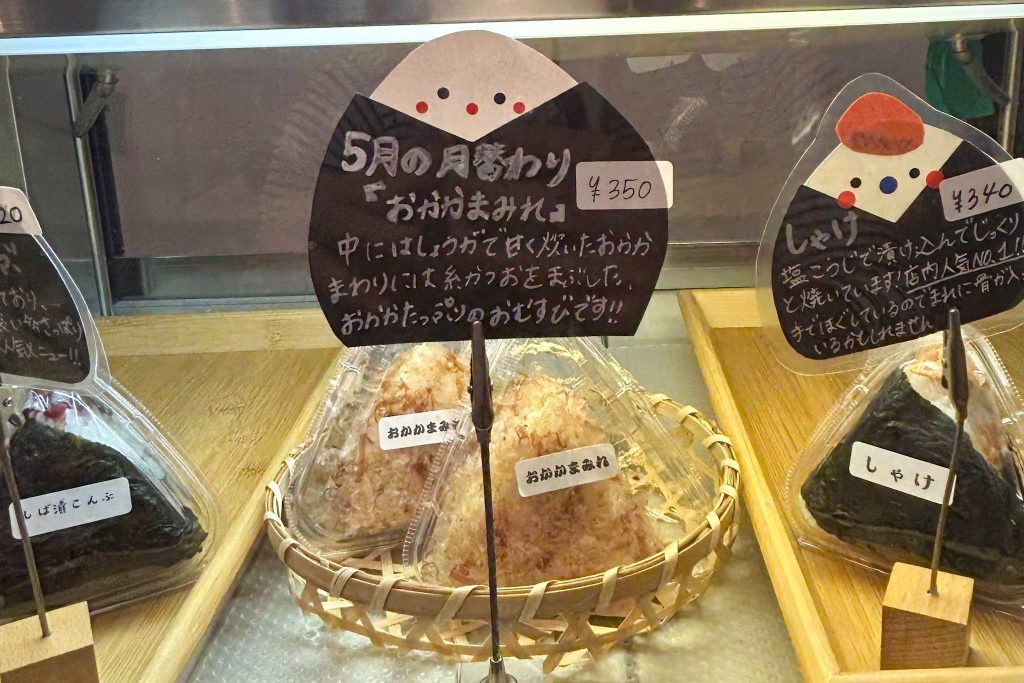 20
ており、
人気メニュー!!
しば漬こんぶ
5月の月替わり
『おかかまみれ』
¥350
中にはしょうがで甘く炊いたおかか
まわりには糸かつおをまぶした、
おかかたっプリのおむすびです!!
おかかまみ
おかかまみれ
¥340
しゃけ
塩こうじで漬け込んでじっくり
と焼いています!店内人気NO.1!!
手でほぐしているのでまれに骨が入
いるかもしれません
しゃけ